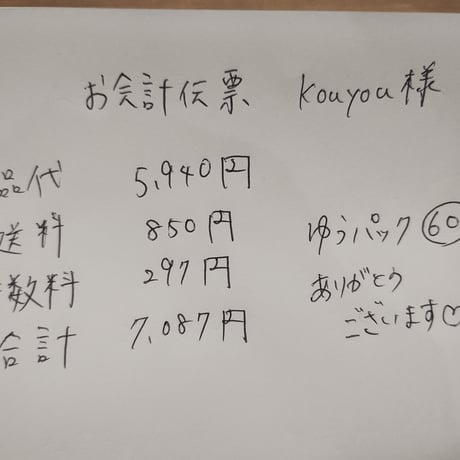 お会計伝票 kouyou様
品代 5,940円
送料 850円 ゆうパック 60
数料 297円 ありがとう
合計 7,087円 ございます♡